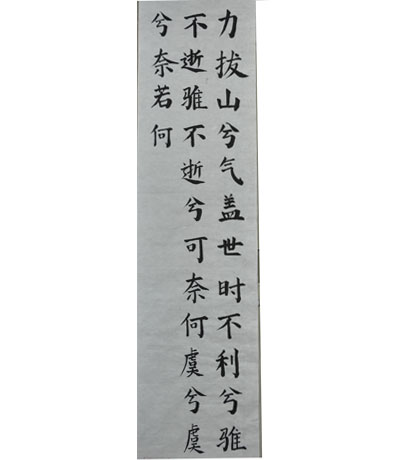 力拔山兮气盖世时不利兮骓
不逝骓不逝兮可奈何虞兮虞
兮奈若何